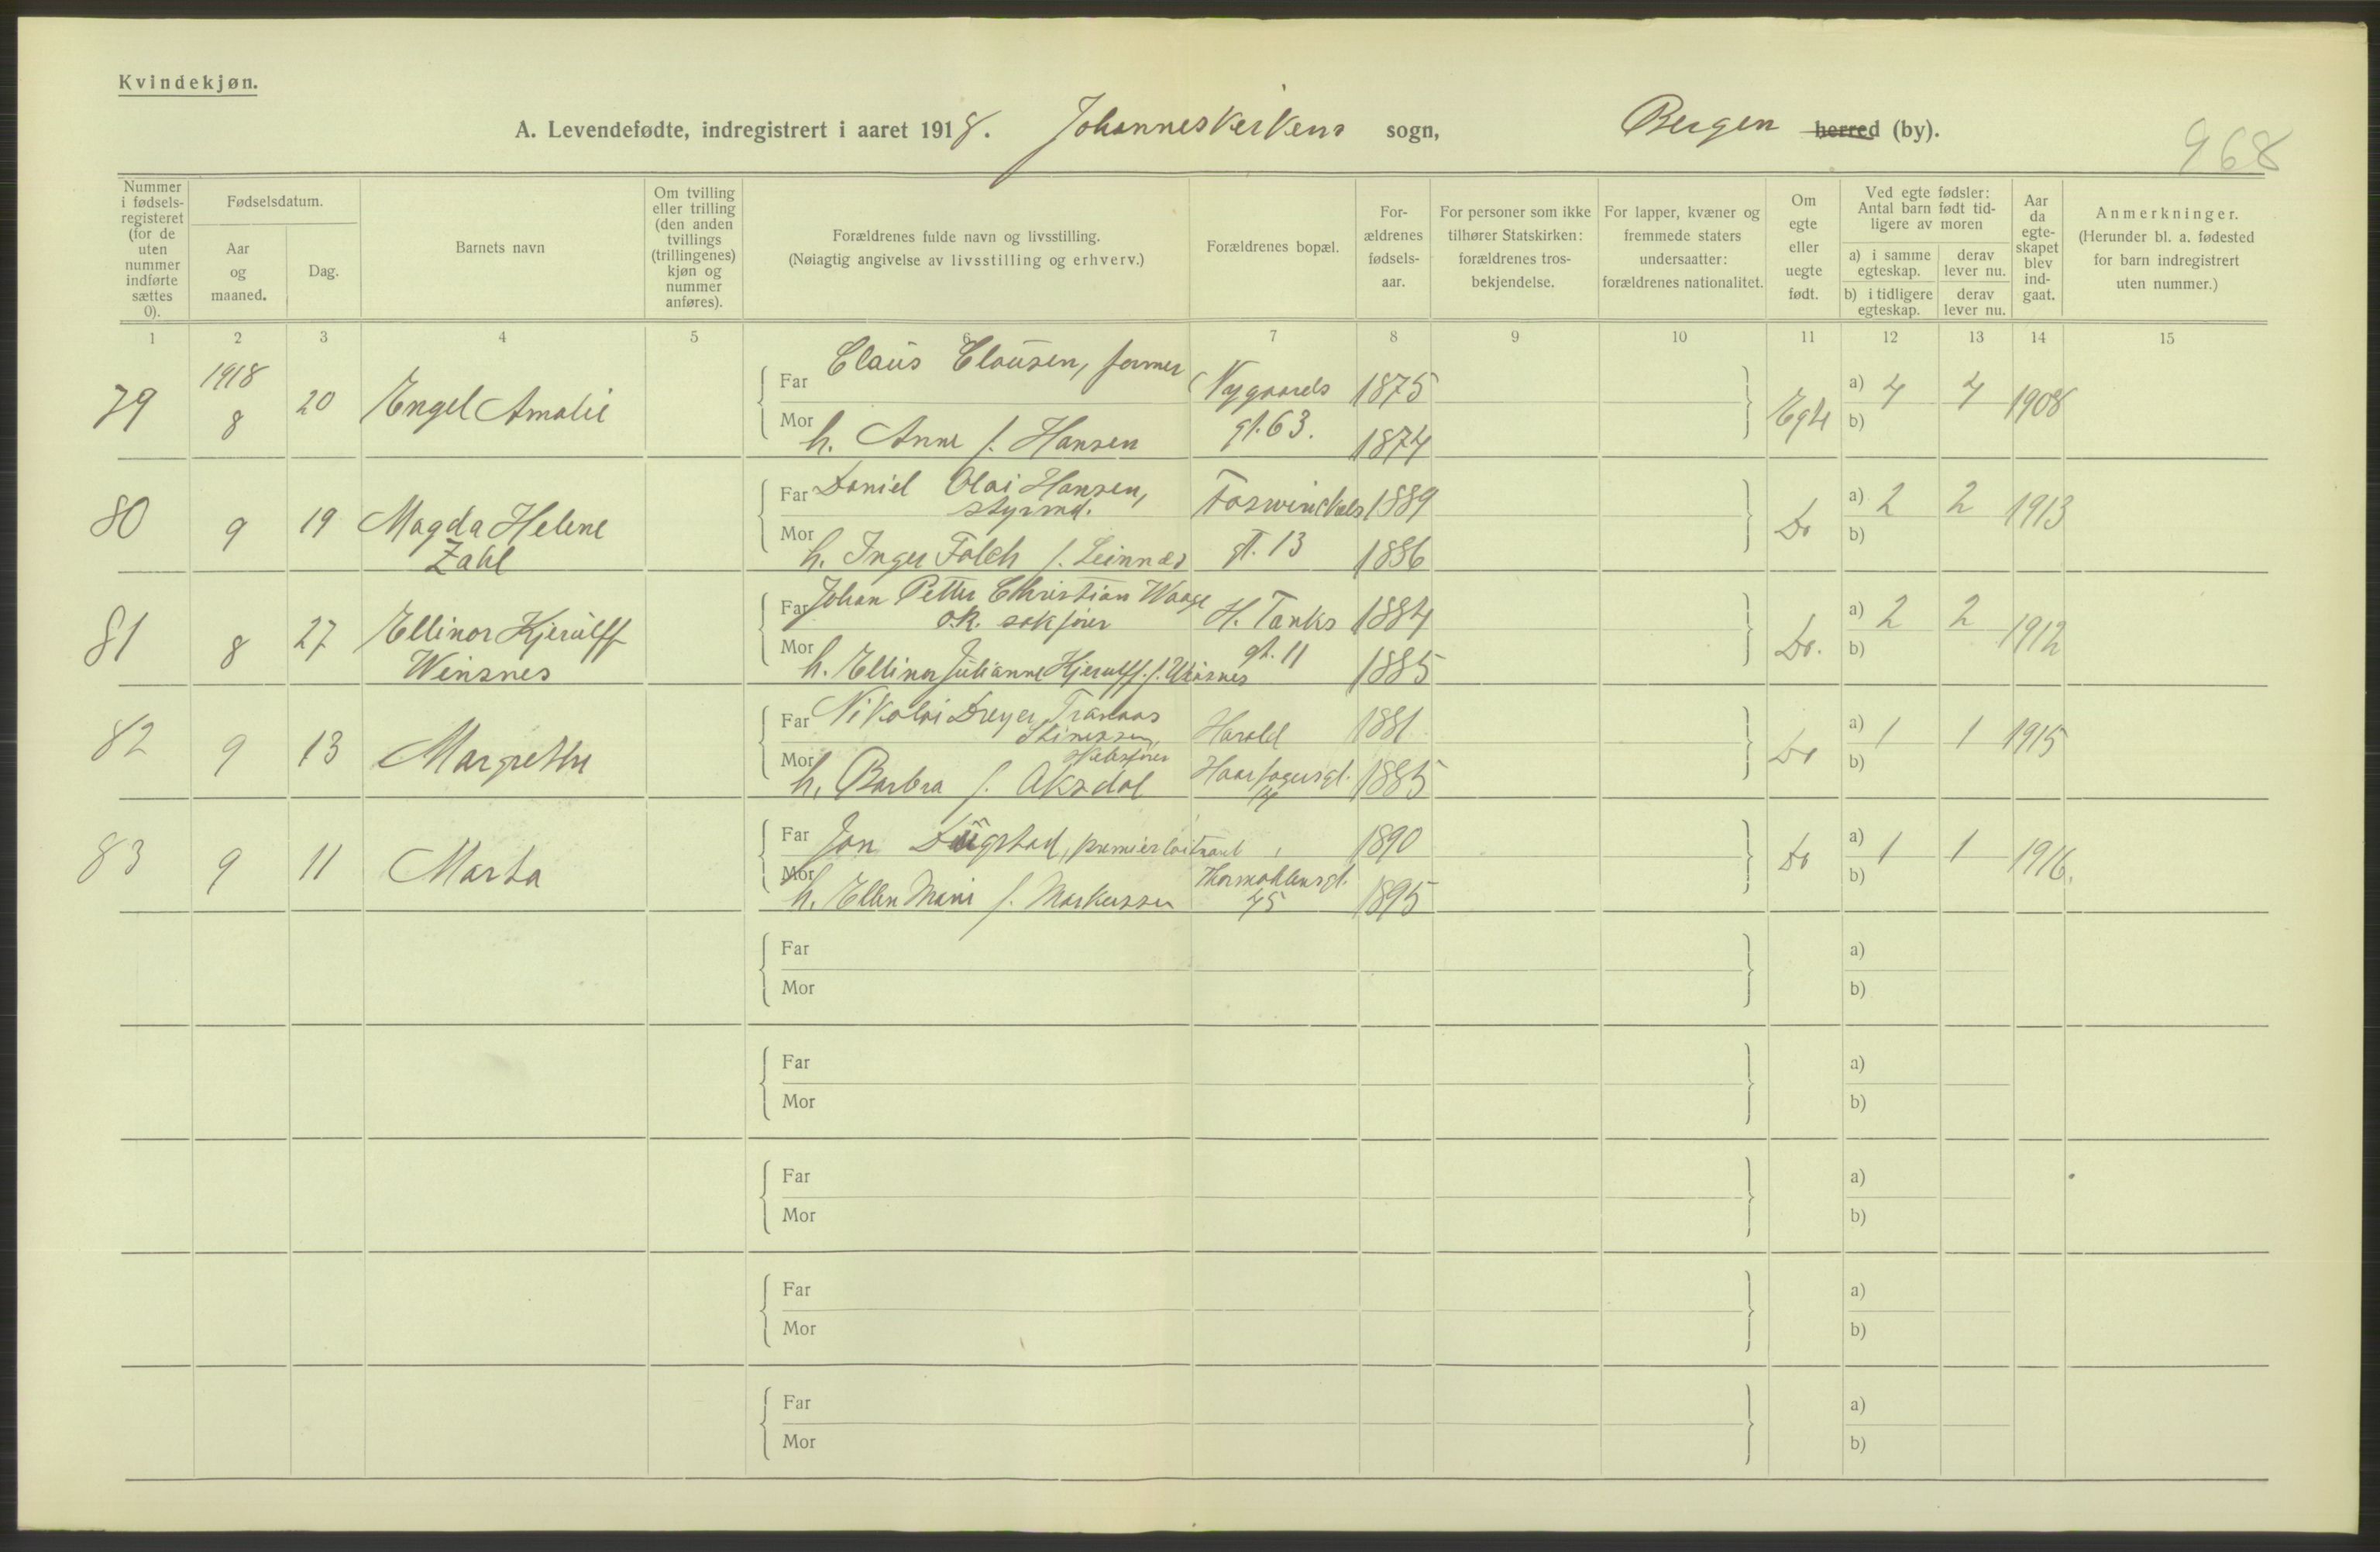 Kvindekjøn.
A. Levendefødte, indregistrert i aaret 1918. Johanneskirkens sogn, Bergen herred (by).
968
Nummer i fødselsregisteret (for de uten nummer indførte sættes 0).
Fødselsdatum.
Aar og maaned.
Dag.
Barnets navn
Om tvilling eller trilling (den anden tvillings (trillingenes) kjøn og nummer anføres).
Forældrenes fulde navn og livsstilling.
(Nøiagtig angivelse av livsstilling og erhverv.)
Forældrenes bopæl.
Forældrenes fødselsaar.
For personer som ikke tilhører Statskirken: forældrenes trosbekjendelse.
For lapper, kvæner og fremmede staters undersaatter: forældrenes nationalitet.
Om egte eller uegte født.
Ved egte fødsler: Antal barn født tidligere av moren
a) i samme egteskap.
derav lever nu.
b) i tidligere egteskap.
derav lever nu.
Aar da egteskapet blev indgaat.
Anmerkninger.
(Herunder bl. a. fødested for barn indregistrert uten nummer.)
1 2 3 4 5 6 7 8 9 10 11 12 13 14 15
79 1918 8 20 Engel Amalie
Far Claus Clausen, former
Mor h. Anne f. Hansen
Nygaards gt. 63.
1875
1874
Egte a) 4 4 1908
b)
80 9 19 Magda Helene Zahl
Far Daniel Olai Hansen, styrmd.
Mor h. Inger Falch f. Leinnæs
Foswinckels gt. 13
1889
1886
Do a) 2 2 1913
b)
81 8 27 Ellinor Kjerulff Weinsnes
Far Johan Petter Christian Waage o.r. sakfører
Mor h. Ellinor Julianne Kjerulff f.
H. Tanks gt. 11
1884
1885
Do. a) 2 2 1912
b)
82 9 13 Margrethe
Far Nikolai Dreyer
Mor h. Barbra f. Aksdal
Harald Haarfagersgt. 14
1881
1885
Do a) 1 1 1915
b)
83 9 11 Marta
Far Jon Dugstad, premierløitnant
Mor h. Ellen Marie f. Markussen
Thormøhlensgt. 45
1890
1895
Do a) 1 1 1916.
b)
Far a)
Mor b)
Far a)
Mor b)
Far a)
Mor b)
Far a)
Mor b)
Far a)
Mor b)